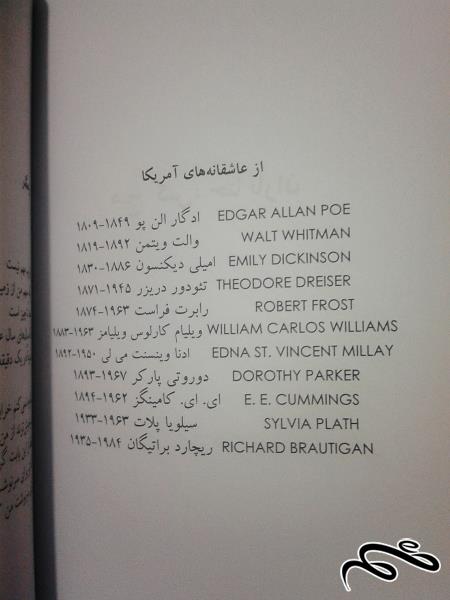 از عاشقانه‌های آمریکا
ادگار الن پو ۱۸۴۹-۱۸۰۹ EDGAR ALLAN POE
والت ویتمن ۱۸۹۲-۱۸۱۹ WALT WHITMAN
امیلی دیکنسون ۱۸۸۶-۱۸۳۰ EMILY DICKINSON
تئودور دریزر ۱۹۴۵-۱۸۷۱ THEODORE DREISER
رابرت فراست ۱۹۶۳-۱۸۷۴ ROBERT FROST
ویلیام کارلوس ویلیامز ۱۹۶۳-۱۸۸۳ WILLIAM CARLOS WILLIAMS
ادنا وینسنت می لی ۱۹۵۰-۱۸۹۲ EDNA ST. VINCENT MILLAY
دوروتی پارکر ۱۹۶۷-۱۸۹۳ DOROTHY PARKER
ای. ای. کامینگز ۱۹۶۲-۱۸۹۴ E. E. CUMMINGS
سیلویا پلات ۱۹۶۳-۱۹۳۳ SYLVIA PLATH
ریچارد براتیگان ۱۹۸۴-۱۹۳۵ RICHARD BRAUTIGAN